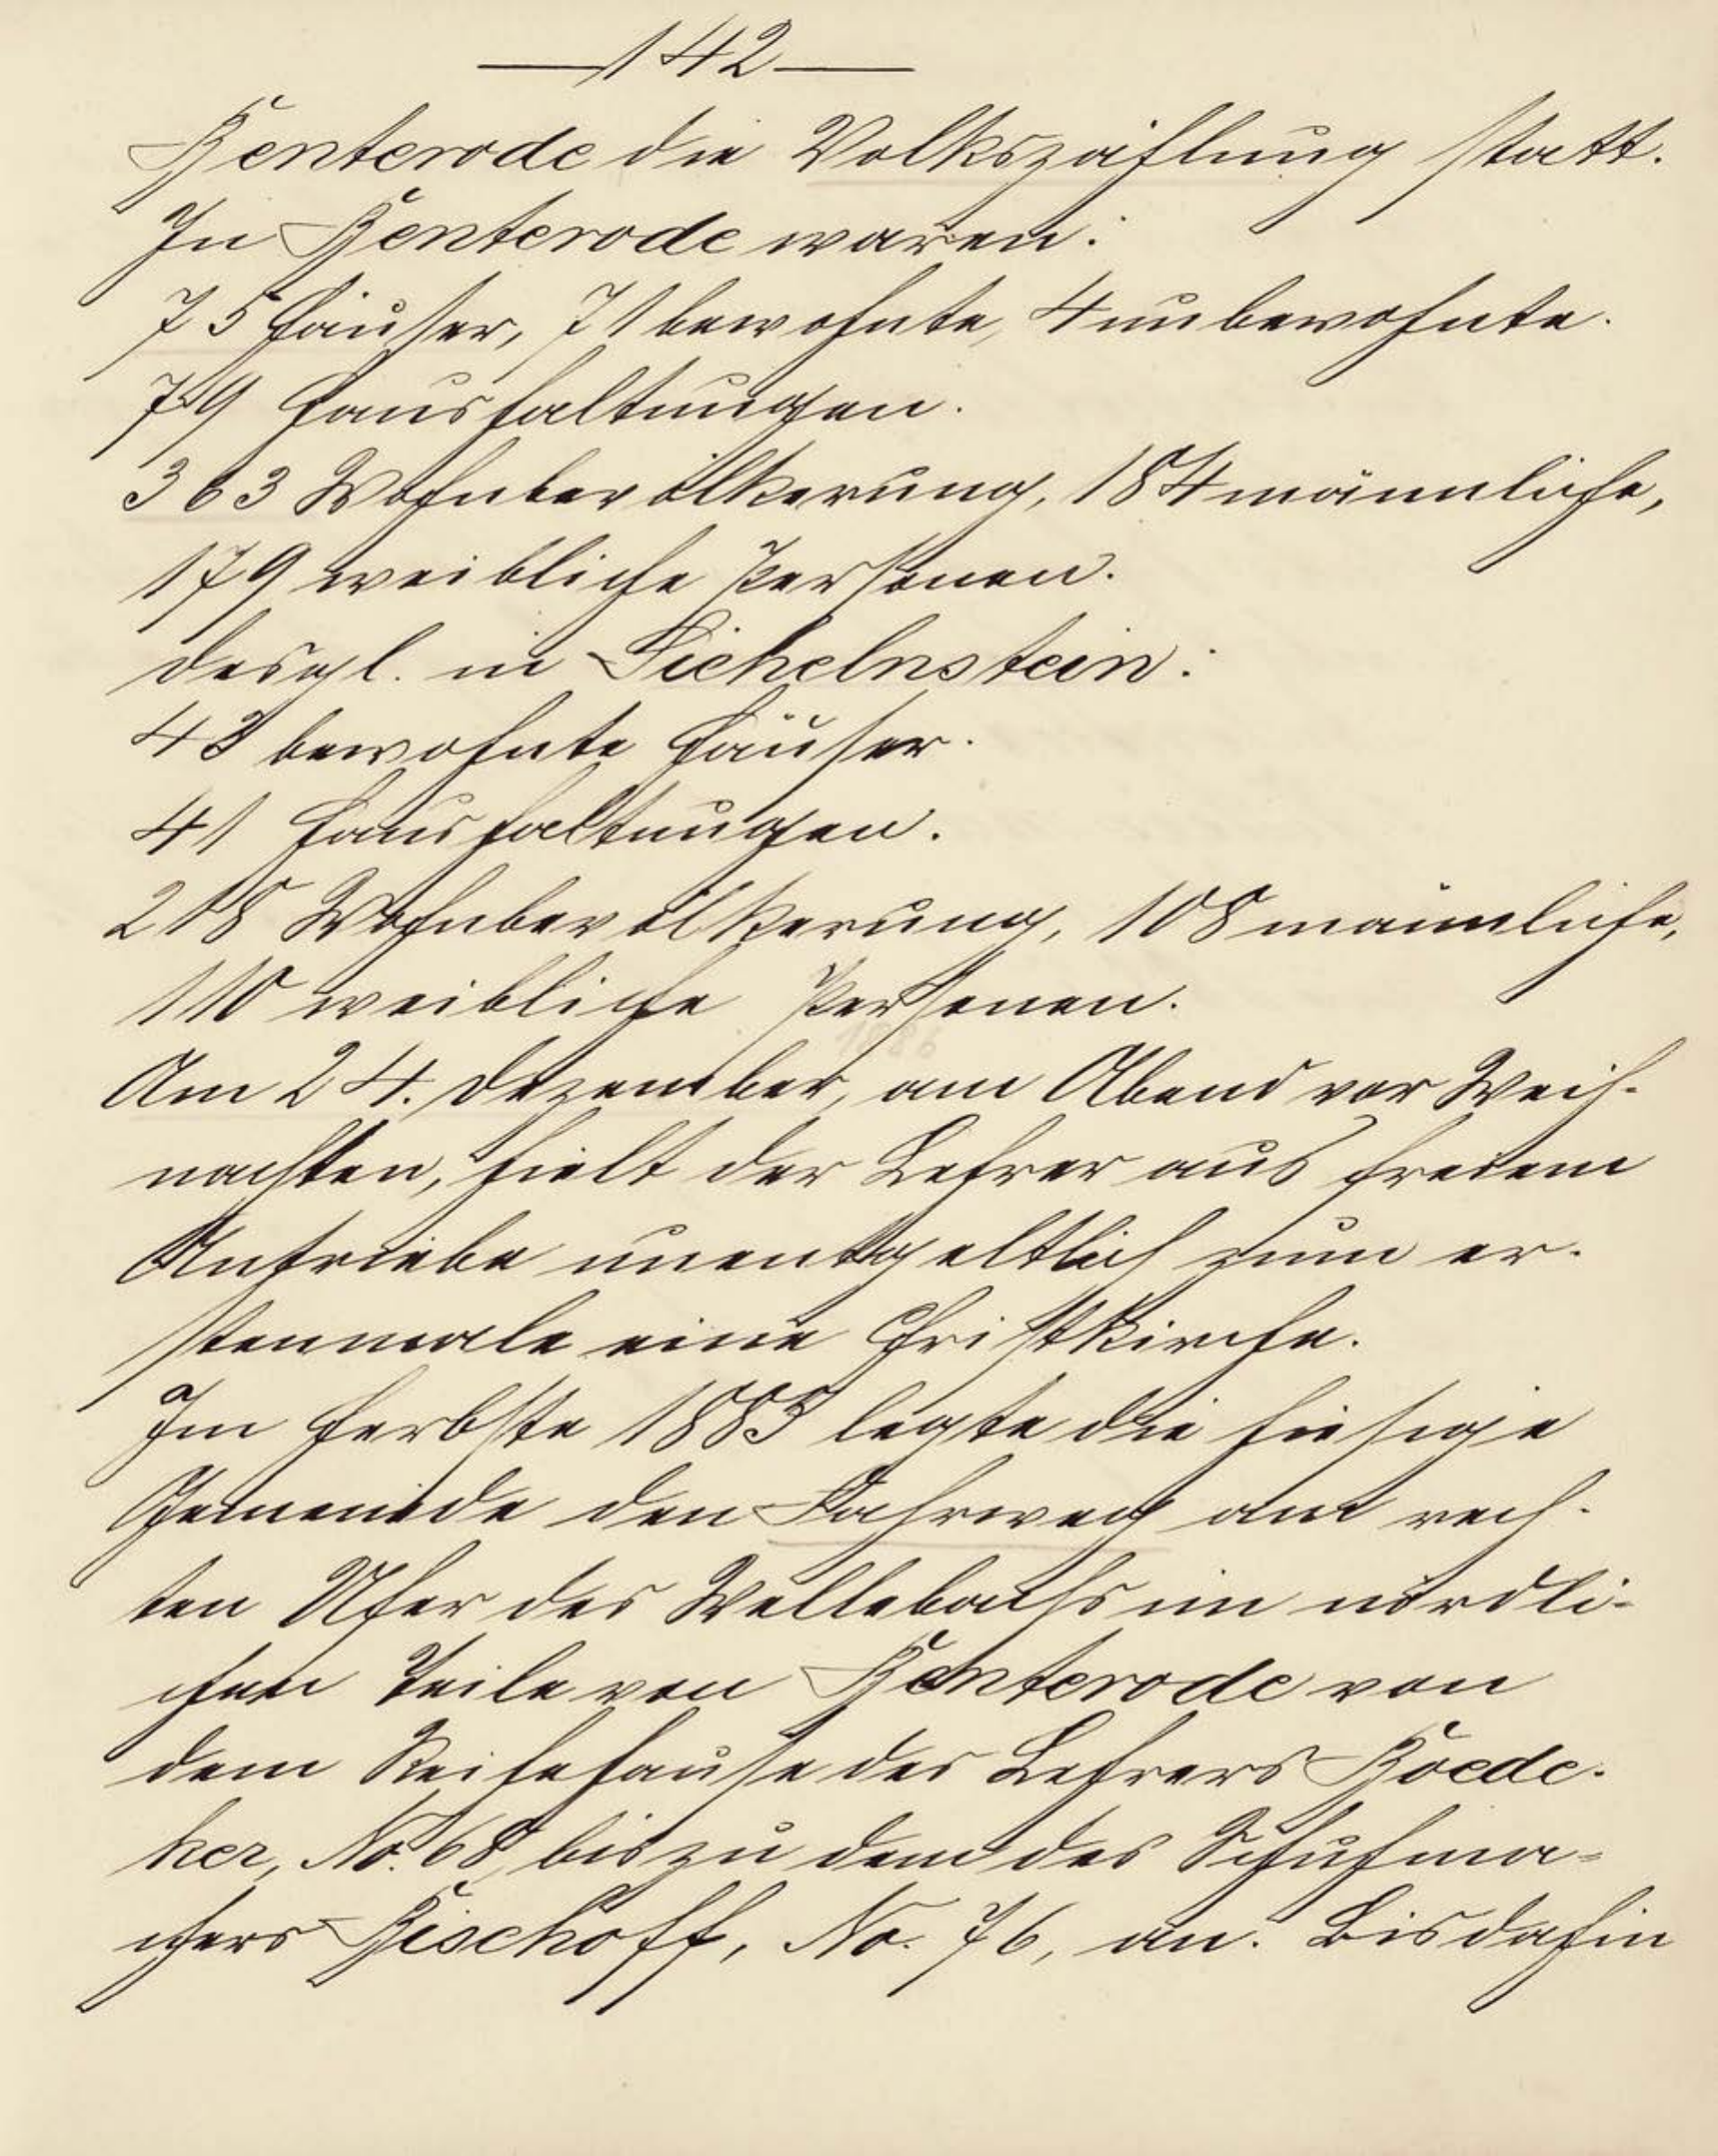 —142—
Benterode die Volkszählung statt.
In Benterode waren:
75 Häuser, 71 bewohnte, 4 unbewohnte.
79 Haushaltungen.
363 Wohnbevölkerung, 184 männliche,
179 weibliche Personen.
desgl. in Sichelnstein:
43 bewohnte Häuser.
41 Haushaltungen.
218 Wohnbevölkerung, 108 männliche,
110 weibliche Personen.
Am 24. Dezember, am Abend vor Weih-
nachten, hielt der Lehrer aus freiem
Antriebe unentgeltlich zum er-
stenmale eine Christkirche.
Im Herbste 1883 legte die hiesige
Gemeinde den Fahrweg am rech-
ten Ufer des Wellebachs im nördli-
chen Teile von Benterode von
dem Reihehause des Lehrers Boede-
ker, No. 68, bis zu dem des Schuhma-
chers Bischoff, No. 76, an. Bis dahin